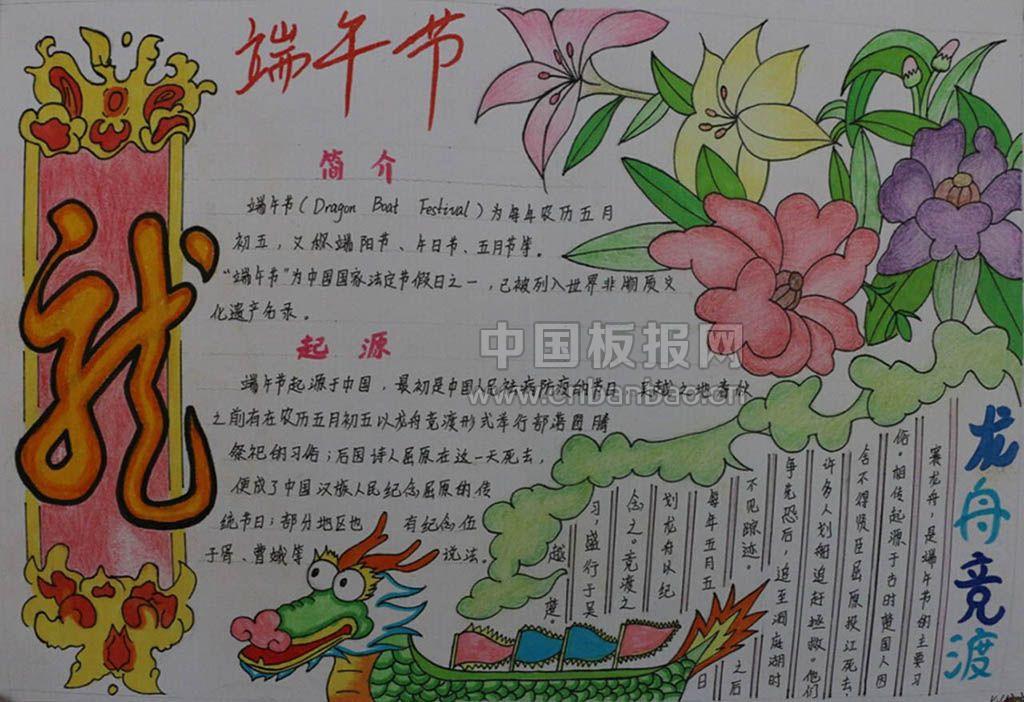 端午节
龙
简介
端午节(Dragon Boat Festival)为每年农历五月
初五,又称端阳节、午日节、五月节等。
“端午节”为中国国家法定节假日之一,已被列入世界非物质文
化遗产名录。
起源
端午节起源于中国,最初是中国人民祛病防疫的节日,吴越之地春秋
之前有在农历五月初五以龙舟竞渡形式举行部落图腾
祭祀的习俗;后因诗人屈原在这一天死去,
便成了中国汉族人民纪念屈原的传
统节日;部分地区也 有纪念伍
子胥、曹娥等 说法。
中国板报网
龙舟竞渡
赛龙舟,是端午节的主要习
俗。相传起源于古时楚国人因
舍不得贤臣屈原投江死去,
许多人划船追赶拯救。他们
争先恐后,追至洞庭湖时
不见踪迹。 之后
每年五月五 日
划龙舟以纪
念之。竞渡之
习,盛行于吴
越 楚。